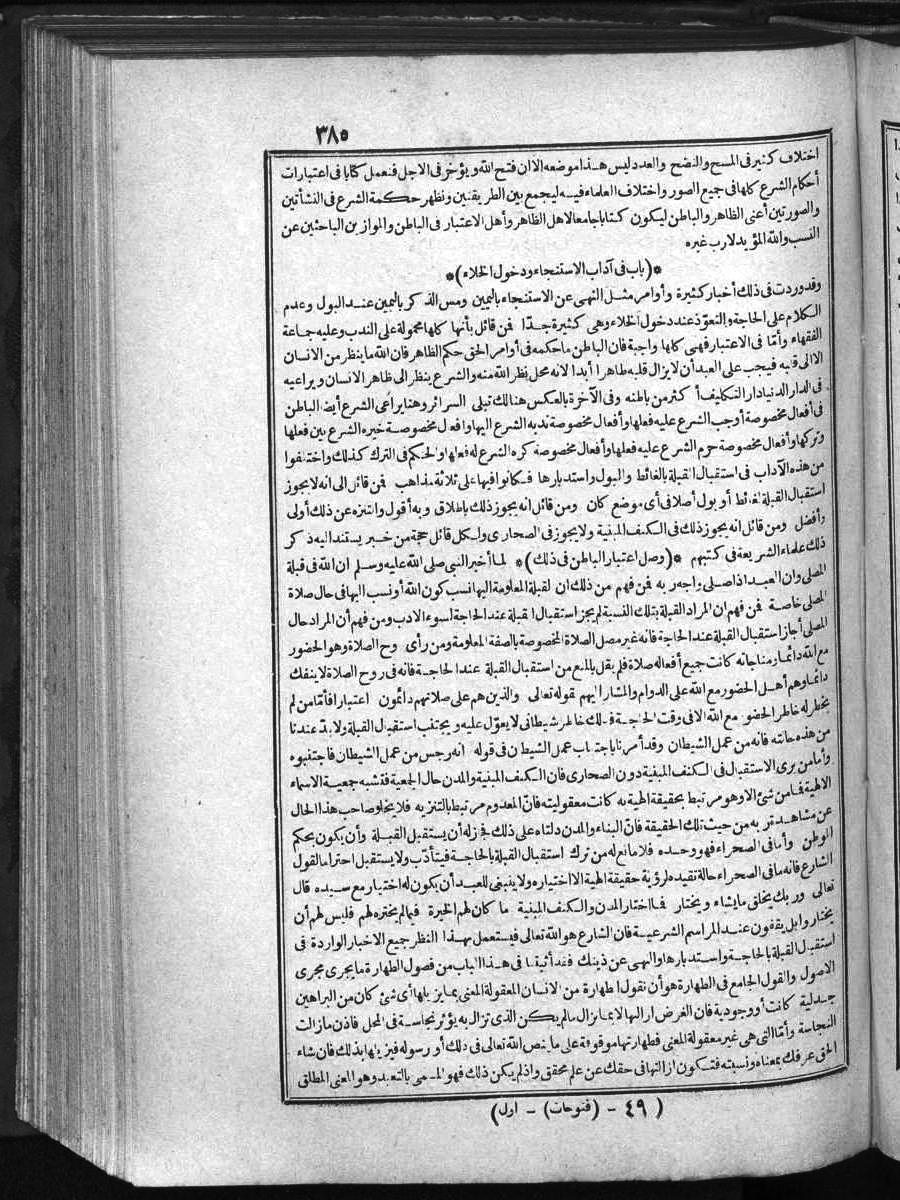 ٣٨٥
اختلاف كثير فى المسح والنضح والعدد ليس هذا موضعه الا ان فتح الله ويؤخر فى الاجل فنعمل كتابا فى اعتبارات
أحكام الشرع كلها فى جميع الصور واختلاف العلماء فيه ليجمع بين الطريقتين ونظهر حكمة الشرع فى النشأتين
والصورتين أعنى الظاهر والباطن ليكون كتابا جامعا لاهل الظاهر وأهل الاعتبار فى الباطن والموازين الباحثين عن
النسب والله المؤيد لا رب غيره
*(باب فى آداب الاستنجاء ودخول الخلاء)*
وقد وردت فى ذلك أخبار كثيرة وأوامر مثل النهى عن الاستنجاء باليمين ومس الذكر باليمين عند البول وعدم
الكلام على الحاجة والتعوّذ عند دخول الخلاء وهى كثيرة جدّا فمن قائل بأنها كلها محمولة على الندب وعليه جماعة
الفقهاء وأمّا فى الاعتبار فهى كلها واجبة فان الباطن ما حكمه فى أوامر الحق حكم الظاهر فان الله ما ينظر من الانسان
الا الى قلبه فيجب على العبد أن لا يزال قلبه طاهرا أبدا لانه محل نظر الله منه والشرع ينظر الى ظاهر الانسان ويراعيه
فى الدار الدنيا دار التكليف أكثر من باطنه وفى الآخرة بالعكس هنالك تبلى السرائر وهنا يراعى الشرع أيضا الباطن
فى أفعال مخصوصة أوجب الشرع عليه فعلها وأفعال مخصوصة ندبه الشرع اليها وافعال مخصوصة خيره الشرع بين فعلها
وتركها وأفعال مخصوصة حرم الشرع عليه فعلها وأفعال مخصوصة كره الشرع له فعلها والحكم فى الترك كذلك واختلفوا
من هذه الآداب فى استقبال القبلة بالغائط والبول واستدبارها فكانوا فيها على ثلاثة مذاهب فمن قائل الى انه لا يجوز
استقبال القبلة لغائط أو بول أصلا فى أى موضع كان ومن قائل انه يجوز ذلك باطلاق وبه أقول والتنزه عن ذلك أولى
وأفضل ومن قائل انه يجوز ذلك فى الكنف المبنية ولا يجوز فى الصحارى ولكل قائل حجة من خبر يستند اليه ذكر
ذلك علماء الشريعة فى كتبهم *(وصل اعتبار الباطن فى ذلك)* لما أخبر النبى صلى الله عليه وسلم ان الله فى قبلة
المصلى وان العبد اذا صلى واجه ربه فمن فهم من ذلك ان لقبلة المعلومة اليها نسب كون الله أو نسب اليها فى حال صلاة
المصلى خاصة فمن فهم ان المراد القبلة بتلك النسبة لم يجز استقبال القبلة عند الحاجة لسوء الادب ومن فهم أن المراد حال
المصلى أجاز استقبال القبلة عند الحاجة فانه غير مصل الصلاة المخصوصة بالصفة المعلومة ومن رأى روح الصلاة وهو الحضور
مع الله دائما ومناجاته كانت جميع أفعاله صلاة فلم يقل بالمنع من استقبال القبلة عند الحاجة فانه فى روح الصلاة لا ينفك
دائما وهم أهل الحضور مع الله على الدوام والمشار اليهم بقوله تعالى والذين هم على صلاتهم دائمون اعتبارا فأمّا من لم
يخطر له خاطر الحضور مع الله الا فى وقت الحاجة فذلك خاطر شيطانى لا يعوّل عليه ويجتنب استقبال القبلة ولا بدّ عندنا
من هذه حالته فانه من عمل الشيطان وقد أمرنا باجتناب عمل الشيطان فى قوله انه رجس من عمل الشيطان فاجتنبوه
وأما من يرى الاستقبال فى الكنف المبنية دون الصحارى فان الكنف المبنية والمدن حال الجمعية فتشبه جمعية الاسماء
الالهية فما من شئ الا وهو مرتبط بحقيقة الهية به كانت معقوليته فانّ المعدوم مرتبط بالتنزيه فلا يخلو صاحب هذا الحال
عن مشاهدة ربه من حيث تلك الحقيقة فانّ البناء والمدن دلتاه على ذلك فجز له أن يستقبل القبلة وأن يكون بحكم
الموطن وأما فى الصحراء فهو وحده فلا مانع له من ترك استقبال القبلة بالحاجة فيتأدّب ولا يستقبل احتراما لقول
الشارع فانه ما فى الصحراء حالة تقيده لرؤية حقيقة الهية الا اختياره ولا ينبغى للعبد أن يكون له اختيار مع سيده قال
تعالى وربك يخلق ما يشاء ويختار فما اختار المدن والكنف المبنية ما كان لهم الخيرة فيما لم يختره لهم فليس لهم أن
يختاروا بل يقفون عند المراسم الشرعية فان الشارع هو الله تعالى فيستعمل بهذا النظر جميع الاخبار الواردة فى
استقبال القبلة بالحاجة واستدبارها والنهى عن ذينك فقد أتينا فى هذا الباب من فصول الطهارة ما يجرى مجرى
الاصول والقول الجامع فى الطهارة هو أن نقول الطهارة من الانسان المعقولة المعنى بما يزيلها أى شئ كان من البراهين
جدلية كانت أو وجودية فان الغرض ازالتها لا بما يزال ما لم يكن الذى تزال به يؤثر نجاسة فى المحل فاذن ما زالت
النجاسة وأمّا التى هى غير معقولة المعنى فطهارتها موقوفة على ما ينص الله تعالى فى ذلك أو رسوله فيزيلها بذلك فان شاء
الحق عرفك بمعناه ونسبته فتكون ازالتها فى حقك عن علم محقق واذا لم يكن ذلك فهو المسمى بالتعبد وهو المعنى المطلق
( ٤٩ - (فتوحات) - اول)